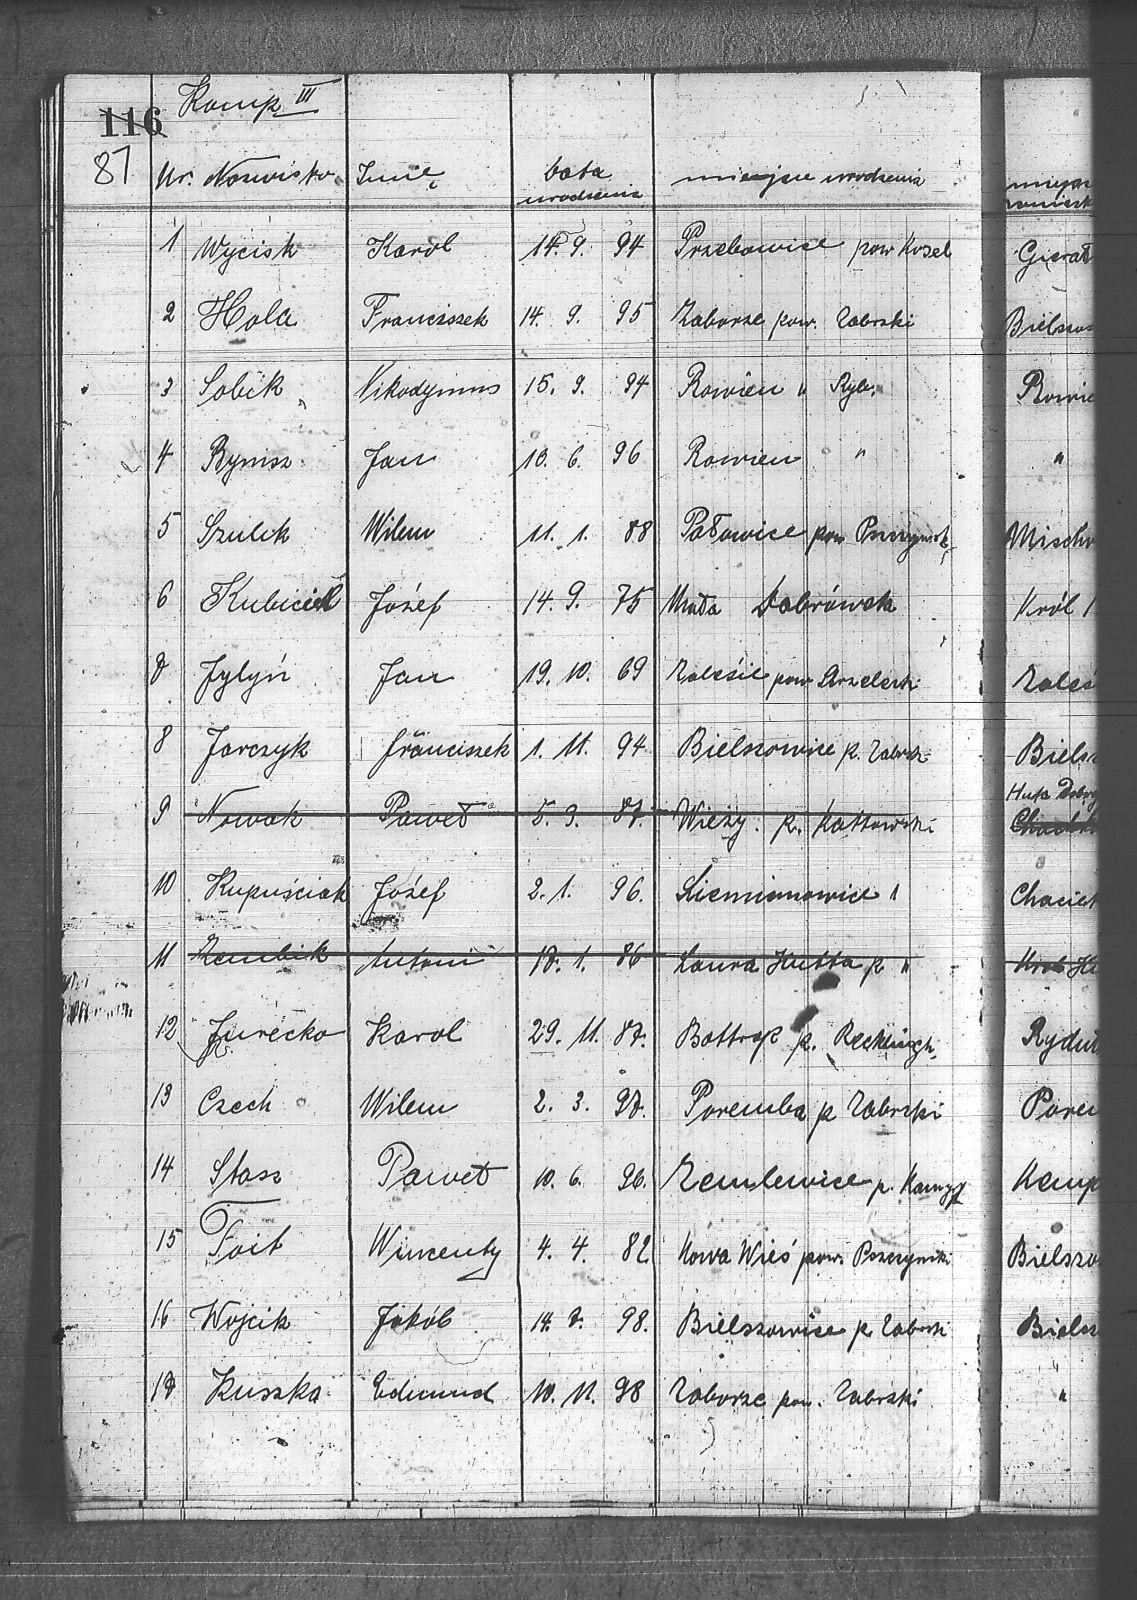 Komp III
116
87
Nr. Nazwisko Imię data urodzenia miejsce urodzenia
1 Wycisk Karol 14. 9. 94 Przebowice pow Kosel Gierał
2 Hola Franciszek 14. 9. 95 Zaborze pow. Zabrski Bielszo
3 Sobik Nikodymus 15. 9. 94 Rowien " Ryb. Rowie
4 Rymsz Jan 13. 6. 96 Rowien " "
5 Szulik Wilem 11. 1. 88 Pałowice pow
6 Kubiciel Józef 14. 9. 75 Mała Dobrówka Król
7 Jylyń Jan 19. 10. 69 Zaleśie pow Strzelecki Zaleś
8 Jarczyk Franciszek 1. 11. 94 Bielszowice p. Zabrsk Biels
Huta
9 Nowak Paweł 5. 3. 87. p. Kattowski
10 Kupuściak Józef 2. 1. 96. Siemianowice "
11 Zembik Antoni 17. 1. 86 Laura Hutta p "
12 Jureczko Karol 29. 11. 87. Bottrop p. Recklingh. Ryduł
13 Czech Wilem 2. 3. 97. Poremba p Zabrski Porem
14 Stasz Paweł 10. 6. 96. p. Kemp
15 Foit Wincenty 4. 4. 82 Nowa Wieś pow. Pszczyński Bielszo
16 Wojcik Jakób 14. 7. 98. Bielszowice p. Zabrski Biels
17 Kuszka Edmund 10. 11. 98 Zaborze pow. Zabrski "